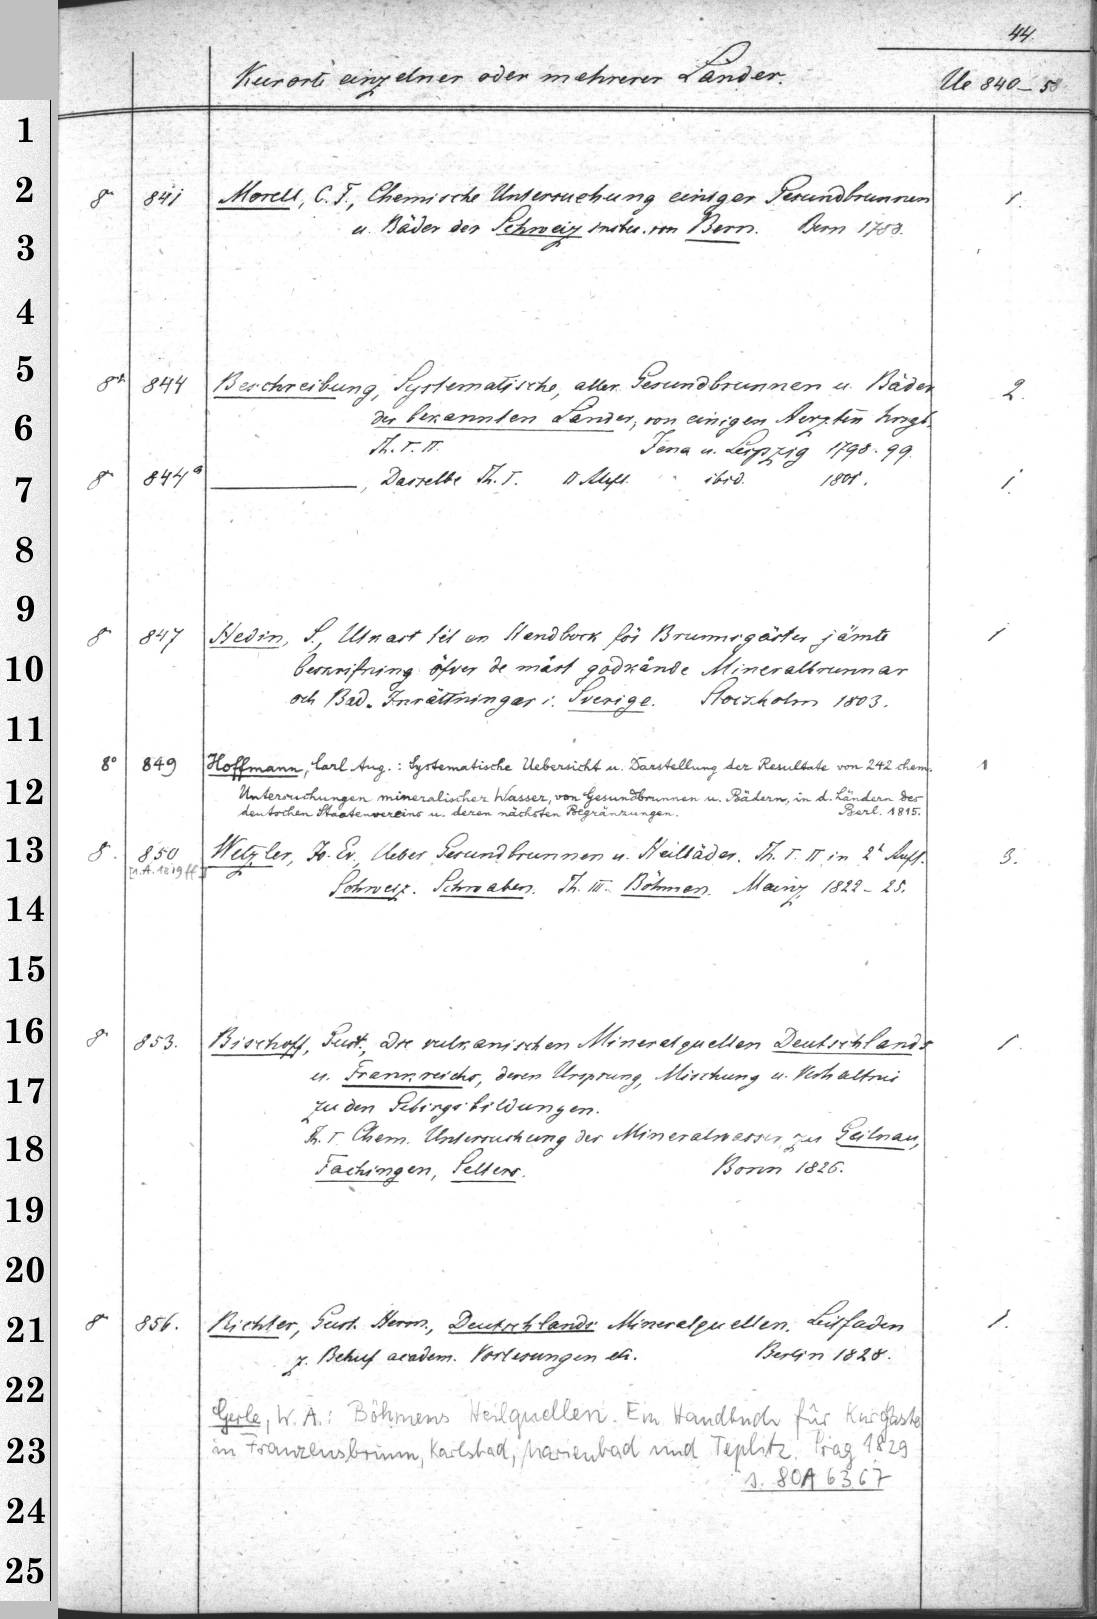 44.
Kurorte einzelner oder mehrerer Länder. Ue 840-58
1
2 8° 841 Morell, C. F., Chemische Untersuchung einiger Gesundbrunnen 1.
3 u. Bäder der Schweiz insbes. von Bern. Bern 1788.
4
5 8° 844 Beschreibung, Systematische, aller Gesundbrunnen u. Bäder 2.
6 der bekannten Länder, von einigen Aerzten hrsgb.
Th. I. II. Jena u. Leipzig 1798. 99.
7 8° 844a ———, Dasselbe Th. I. II Aufl. ibid. 1801. 1.
8
9 8° 847 Hedin, S., Utkast til en Handbock för Brunnsgäster jämte 1
10 beskrifning öfver de mäst godkände Mineralbrunnar
och Bad-Inrättningar i. Sverige. Stockholm 1803.
11
8° 849 Hoffmann, Carl Aug.: Systematische Uebersicht u. Darstellung der Resultate von 242 chem. 1
12 Untersuchungen mineralischer Wasser, von Gesundbrunnen u. Bädern, in d. Ländern des
deutschen Staatenvereins u. deren nächsten Begränzungen. Berl. 1815.
13 8°. 850 Wetzler, Jo. Ev., Ueber Gesundbrunnen u. Heilbäder. Th. I. II in 2t Aufl. 3.
[1.A. 1819 ff] Schweiz. Schwaben. Th. III. Böhmen. Mainz 1822-25.
14
15
16 8° 853. Bischoff, Gust., Die vulkanischen Mineralquellen Deutschlands 1.
17 u. Frankreichs, deren Ursprung, Mischung u. Verhältnis
zu den Gebirgsbildungen.
18 Th. I Chem. Untersuchung der Mineralwasser zu Geilnau,
Fachingen, Selters. Bonn 1826.
19
20
21 8° 856. Richter, Gust. Herm., Deutschlands Mineralquellen. Leitfaden 1.
z. Behuf academ. Vorlesungen etc. Berlin 1828.
22 Gerle, W. A.: Böhmens Heilquellen. Ein Handbuch für Kurgäste
23 in Franzensbrunn, Karlsbad, Marienbad und Teplitz. Prag 1829
s. 80A 6367
24
25